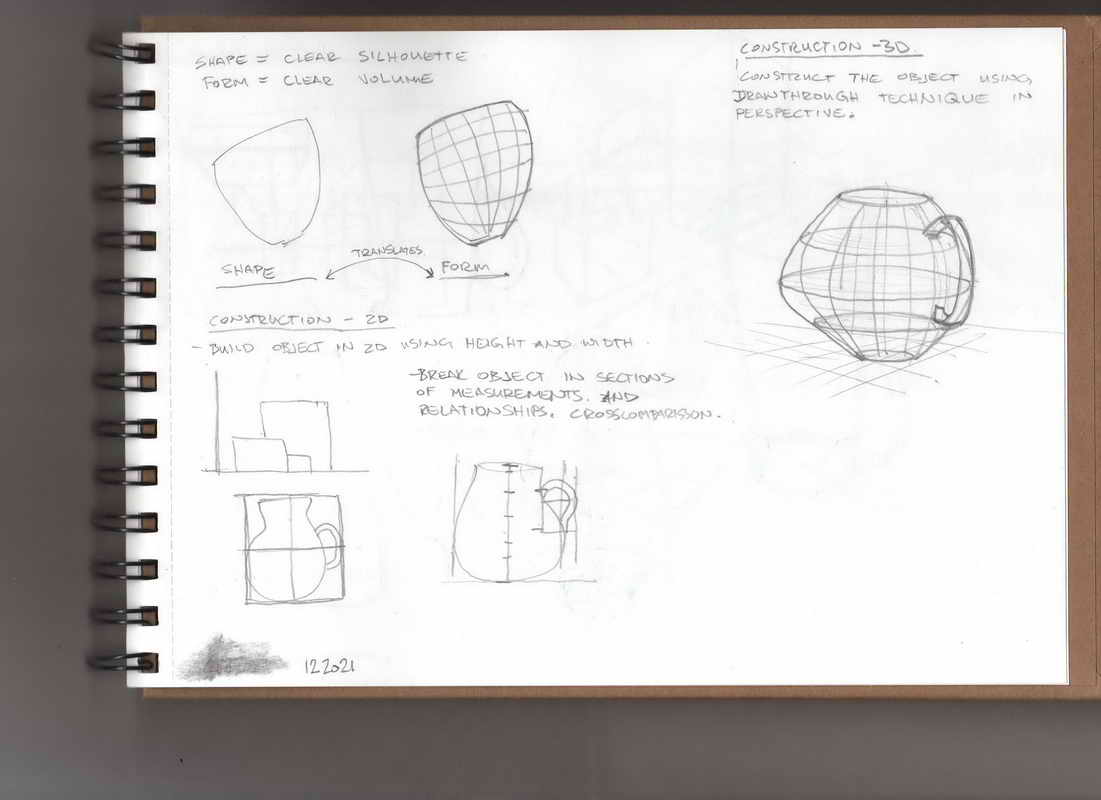 SHAPE = CLEAR SILHOUETTE
FORM = CLEAR VOLUME
SHAPE
TRANSLATES
FORM
CONSTRUCTION - 2D
- BUILD OBJECT IN 2D USING HEIGHT AND WIDTH.
- BREAK OBJECT IN SECTIONS
OF MEASUREMENTS. AND
RELATIONSHIPS. CROSSCOMPARISSON.
122021
CONSTRUCTION - 3D.
CONSTRUCT THE OBJECT USING
DRAWTHROUGH TECHNIQUE IN
PERSPECTIVE.